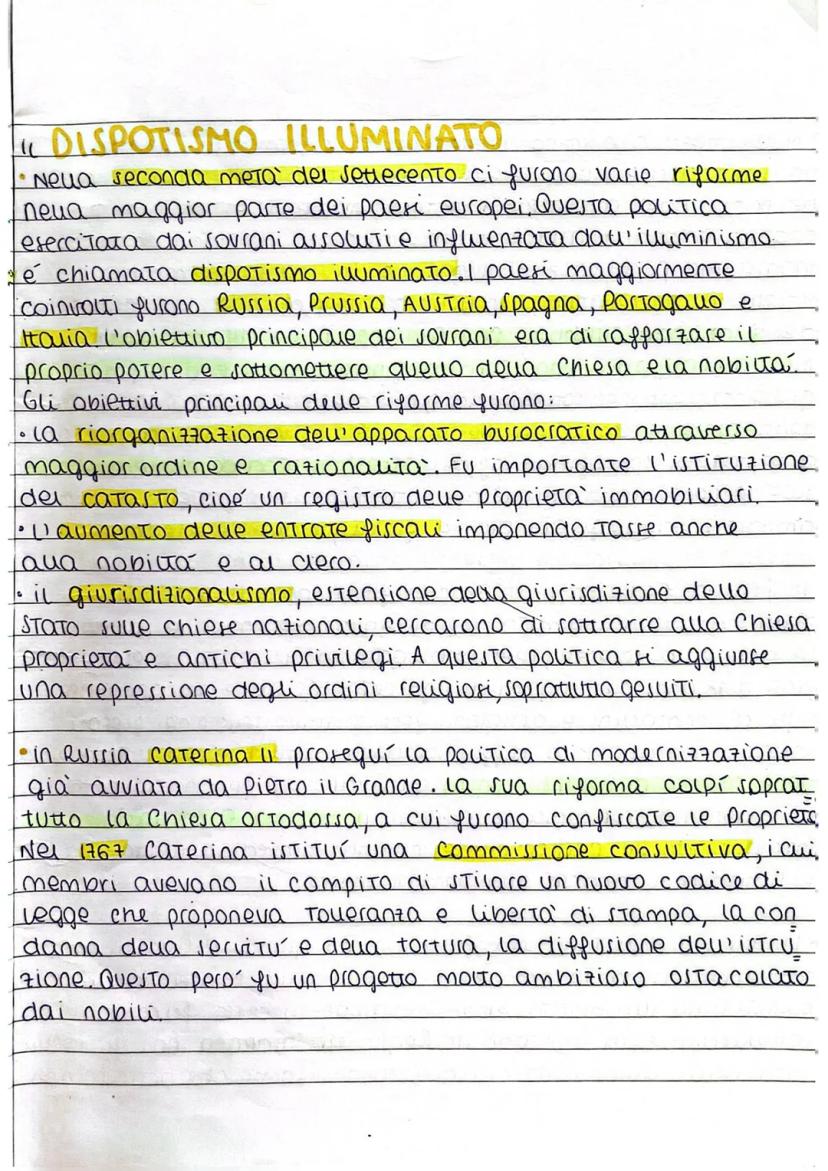 Il DISPOTISMO ILLUMINATO
• Nella seconda metà del settecento ci furono varie riforme
nella maggior parte dei paesi europei. Questa politica
esercitata dai sovrani assoluti e influenzata dall'illuminismo
é chiamata dispotismo illuminato. I paesi maggiormente
coinvolti furono Russia, Prussia, Austria, Spagna, Portogallo e
Italia l'obiettivo principale dei sovrani era di rafforzare il
proprio potere e sottomettere quello della Chiesa e la nobiltá.
Gli obiettivi principali delle riforme furono:
• la riorganizzazione dell'apparato burocratico attraverso
maggior ordine e razionalità. Fu importante l'istituzione
del catasto, cioé un registro delle proprietà immobiliari.
• L'aumento delle entrate fiscali imponendo tasse anche
alla nobiltá e al clero.
• il giurisdizionalismo, estensione della giurisdizione dello
stato sulle chiese nazionali, cercarono di sottrarre alla Chiesa
proprietá e antichi privilegi. A questa politica si aggiunse
una repressione degli ordini religiosi, sopratutto gesuiti.
• in Russia Caterina II proseguí la politica di modernizzazione
già avviata da Pietro il Grande. La sua riforma colpí soprat=
tutto la Chiesa ortodossa, a cui furono confiscate le proprietà
Nel 1767 Caterina istituí una Commissione consultiva, i cui
membri avevano il compito di stilare un nuovo codice di
legge che proponeva tolleranza e libertà di stampa, la con=
danna della servitú e della tortura, la diffusione dell'istru=
zione. Questo peró fu un progetto molto ambizioso ostacolato
dai nobili.